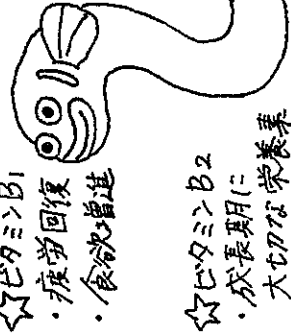 ☆ビタミンB1
・疲労回復
・食欲増進
☆ビタミンB2
・成長期に
大切な栄養素